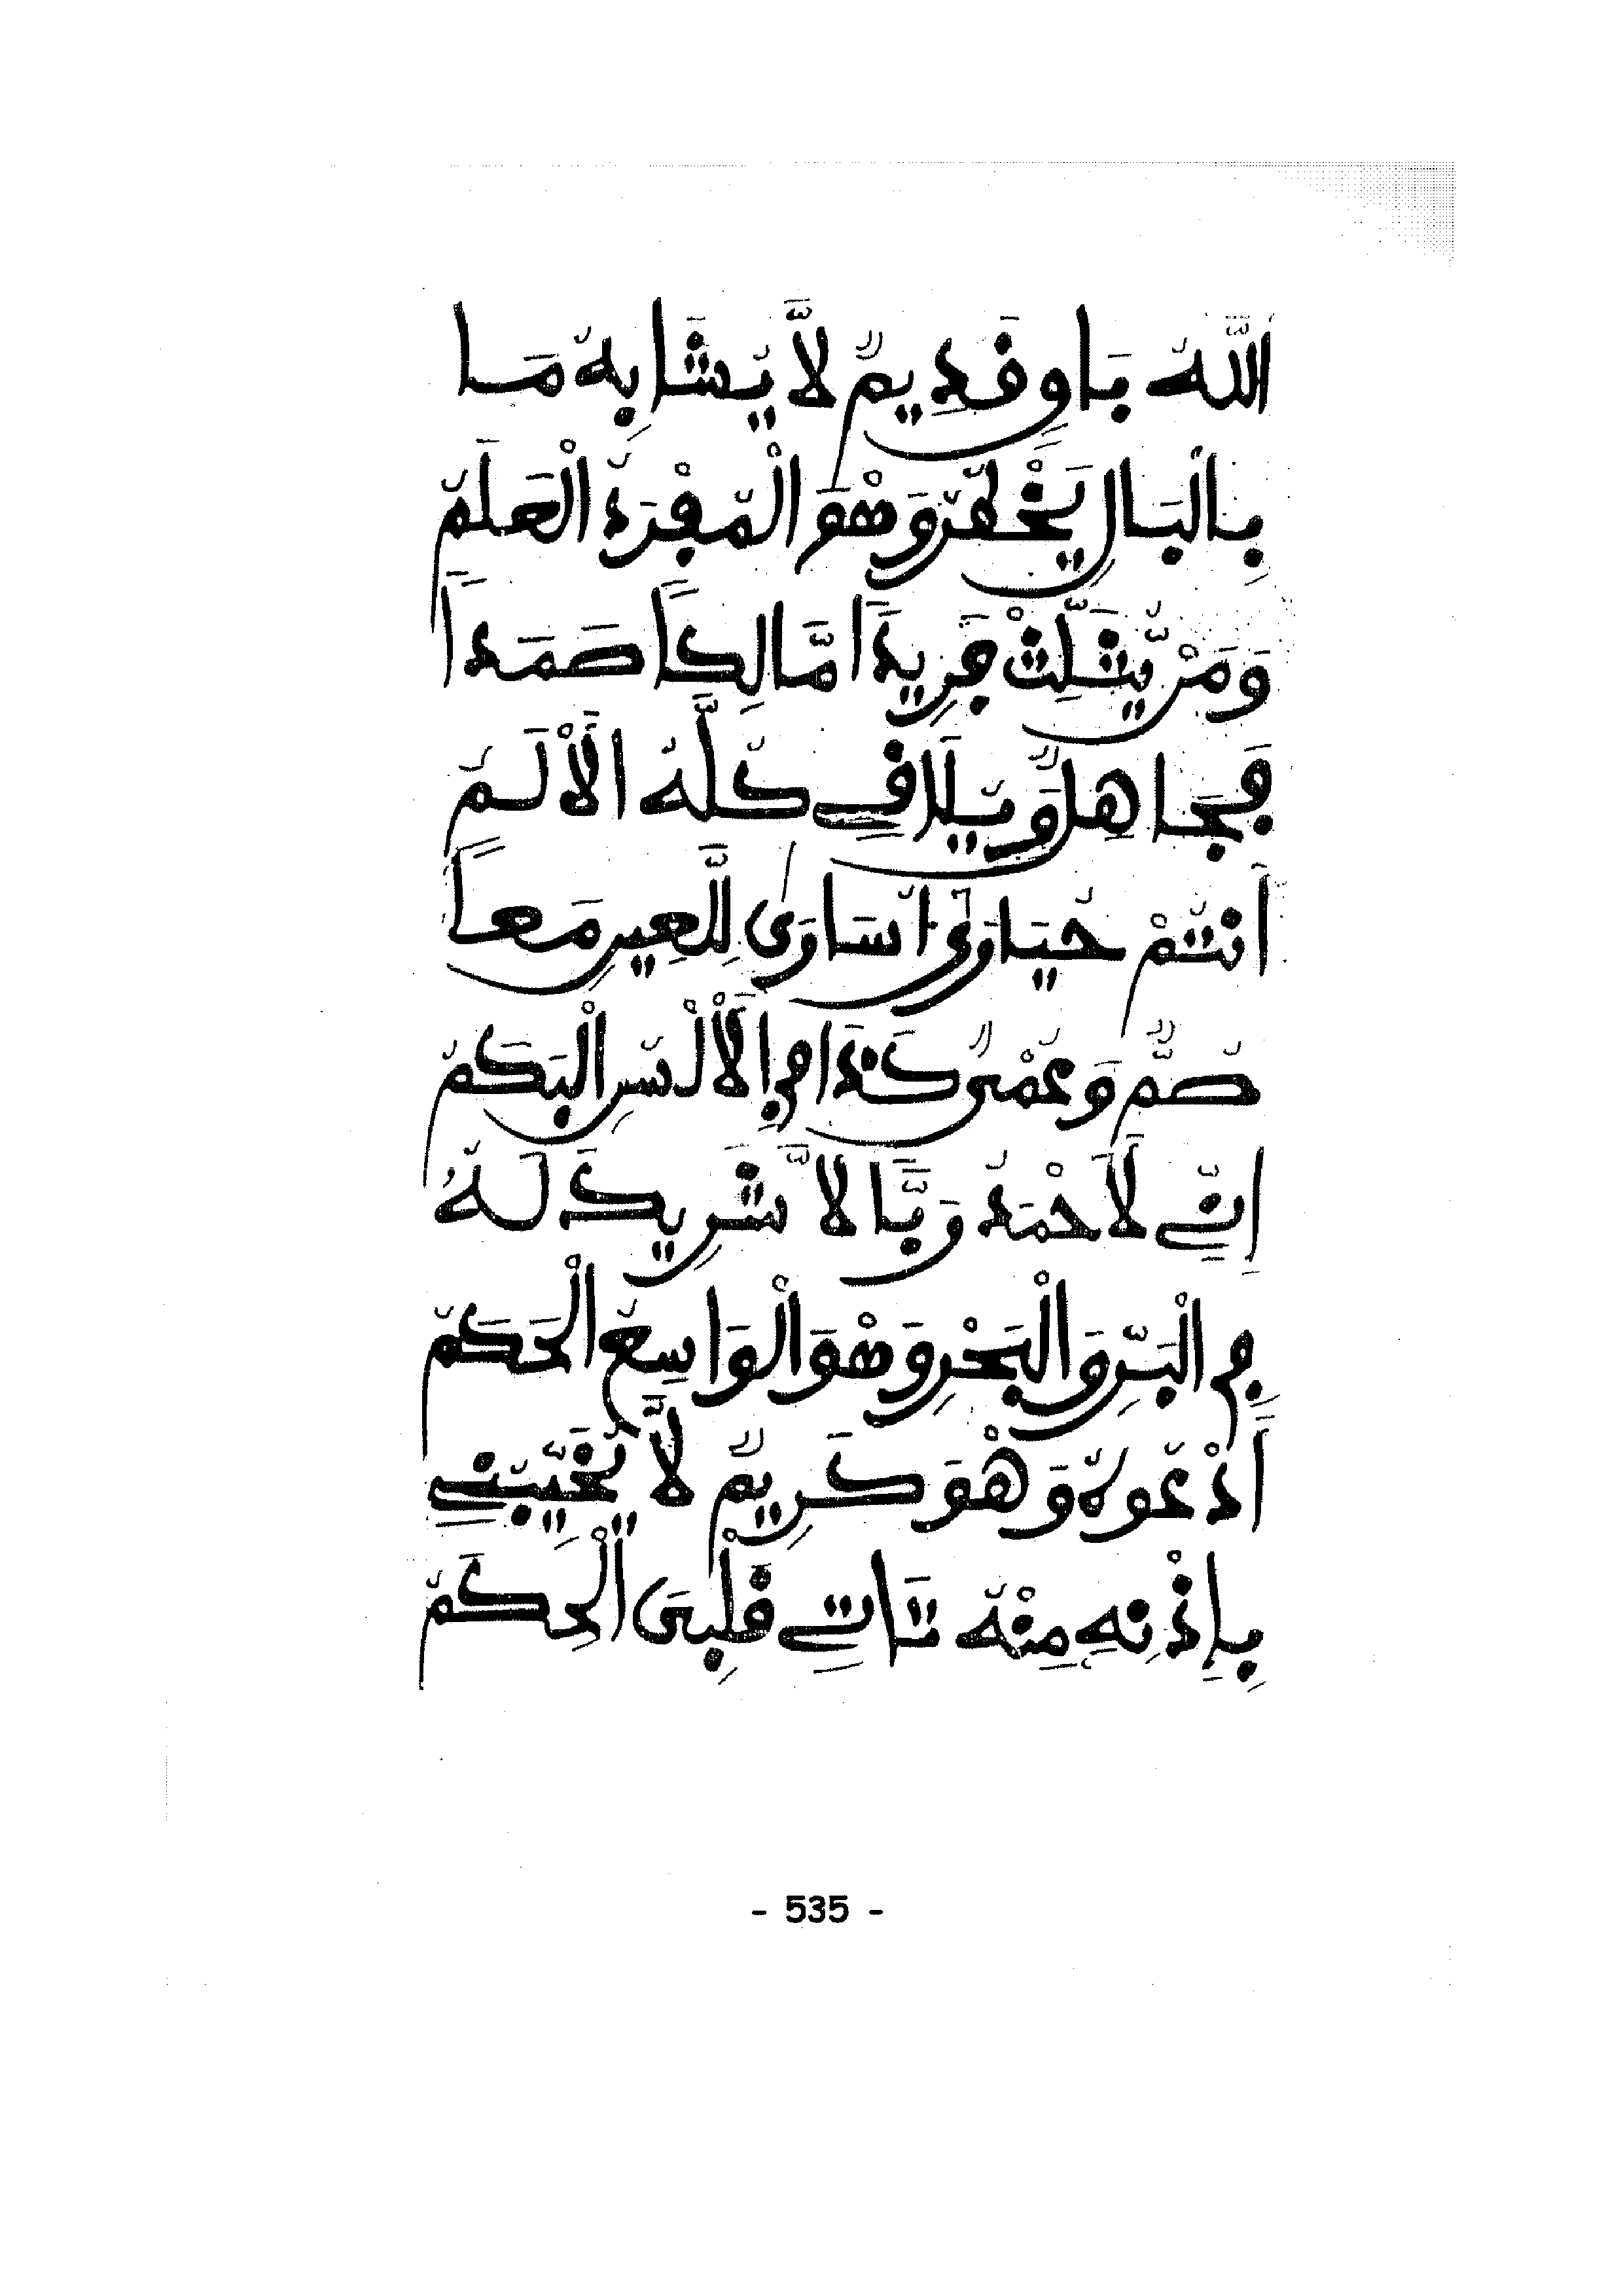 اللَّهُ بَاقٍ قَدِيمٌ لَّا يُشَابِهُ مَا
بِالْبَالِ يَخْطُرُ وَهْوَ الْمُفْرَدُ الْعَلَمُ
وَمَنْ يُّثَلِّثْ فَرِيدًا مَّالِكًا صَمَدًا
فَجَاهِلٌ وَمَيْلًا فِي كُلِّهِ الْأَلَمُ
أَنْتُمْ حَيَارَى أُسَارَى لِلَّعِينِ مَعًا
صُمٌّ وَعُمْيٌ كَذَا مِ الْأَلْسُنِ الْبَكَمُ
إِنِّي لَأَحْمَدُ رَبًّا لَّا شَرِيكَ لَهُ
فِي الْبَرِّ وَالْبَحْرِ وَهْوَ الْوَاسِعُ الْحَكَمُ
أَدْعُوهُ وَهْوَ كَرِيمٌ لَّا يُخَيِّبُنِي
بِإِذْنِهِ مِنْهُ تَاتِي قَلْبِيَ الْحِكَمُ
- 535 -